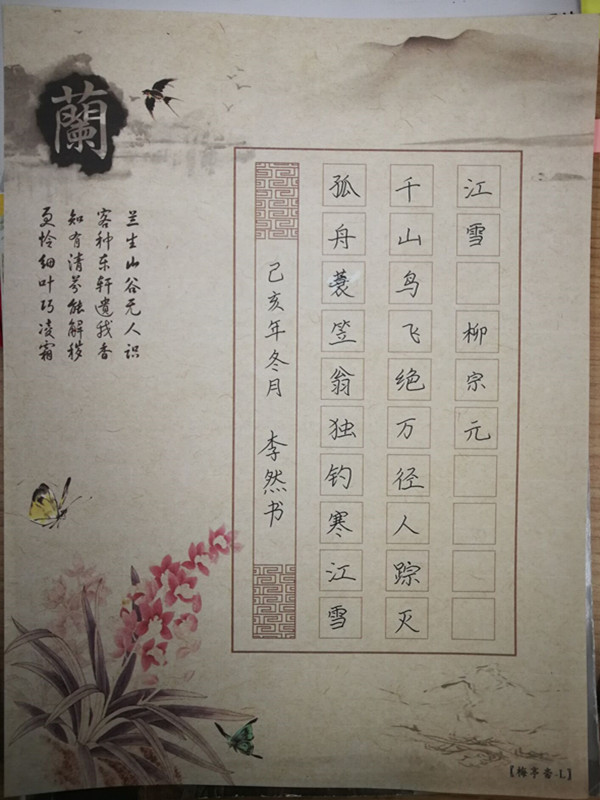 江雪 柳宗元
千山鸟飞绝万径人踪灭
孤舟蓑笠翁独钓寒江雪
己亥年冬月 李然书
蘭
兰生山谷无人识
客种东轩遗我香
知有清芬能解秽
更怜细叶巧凌霜
【梅亭香-L】